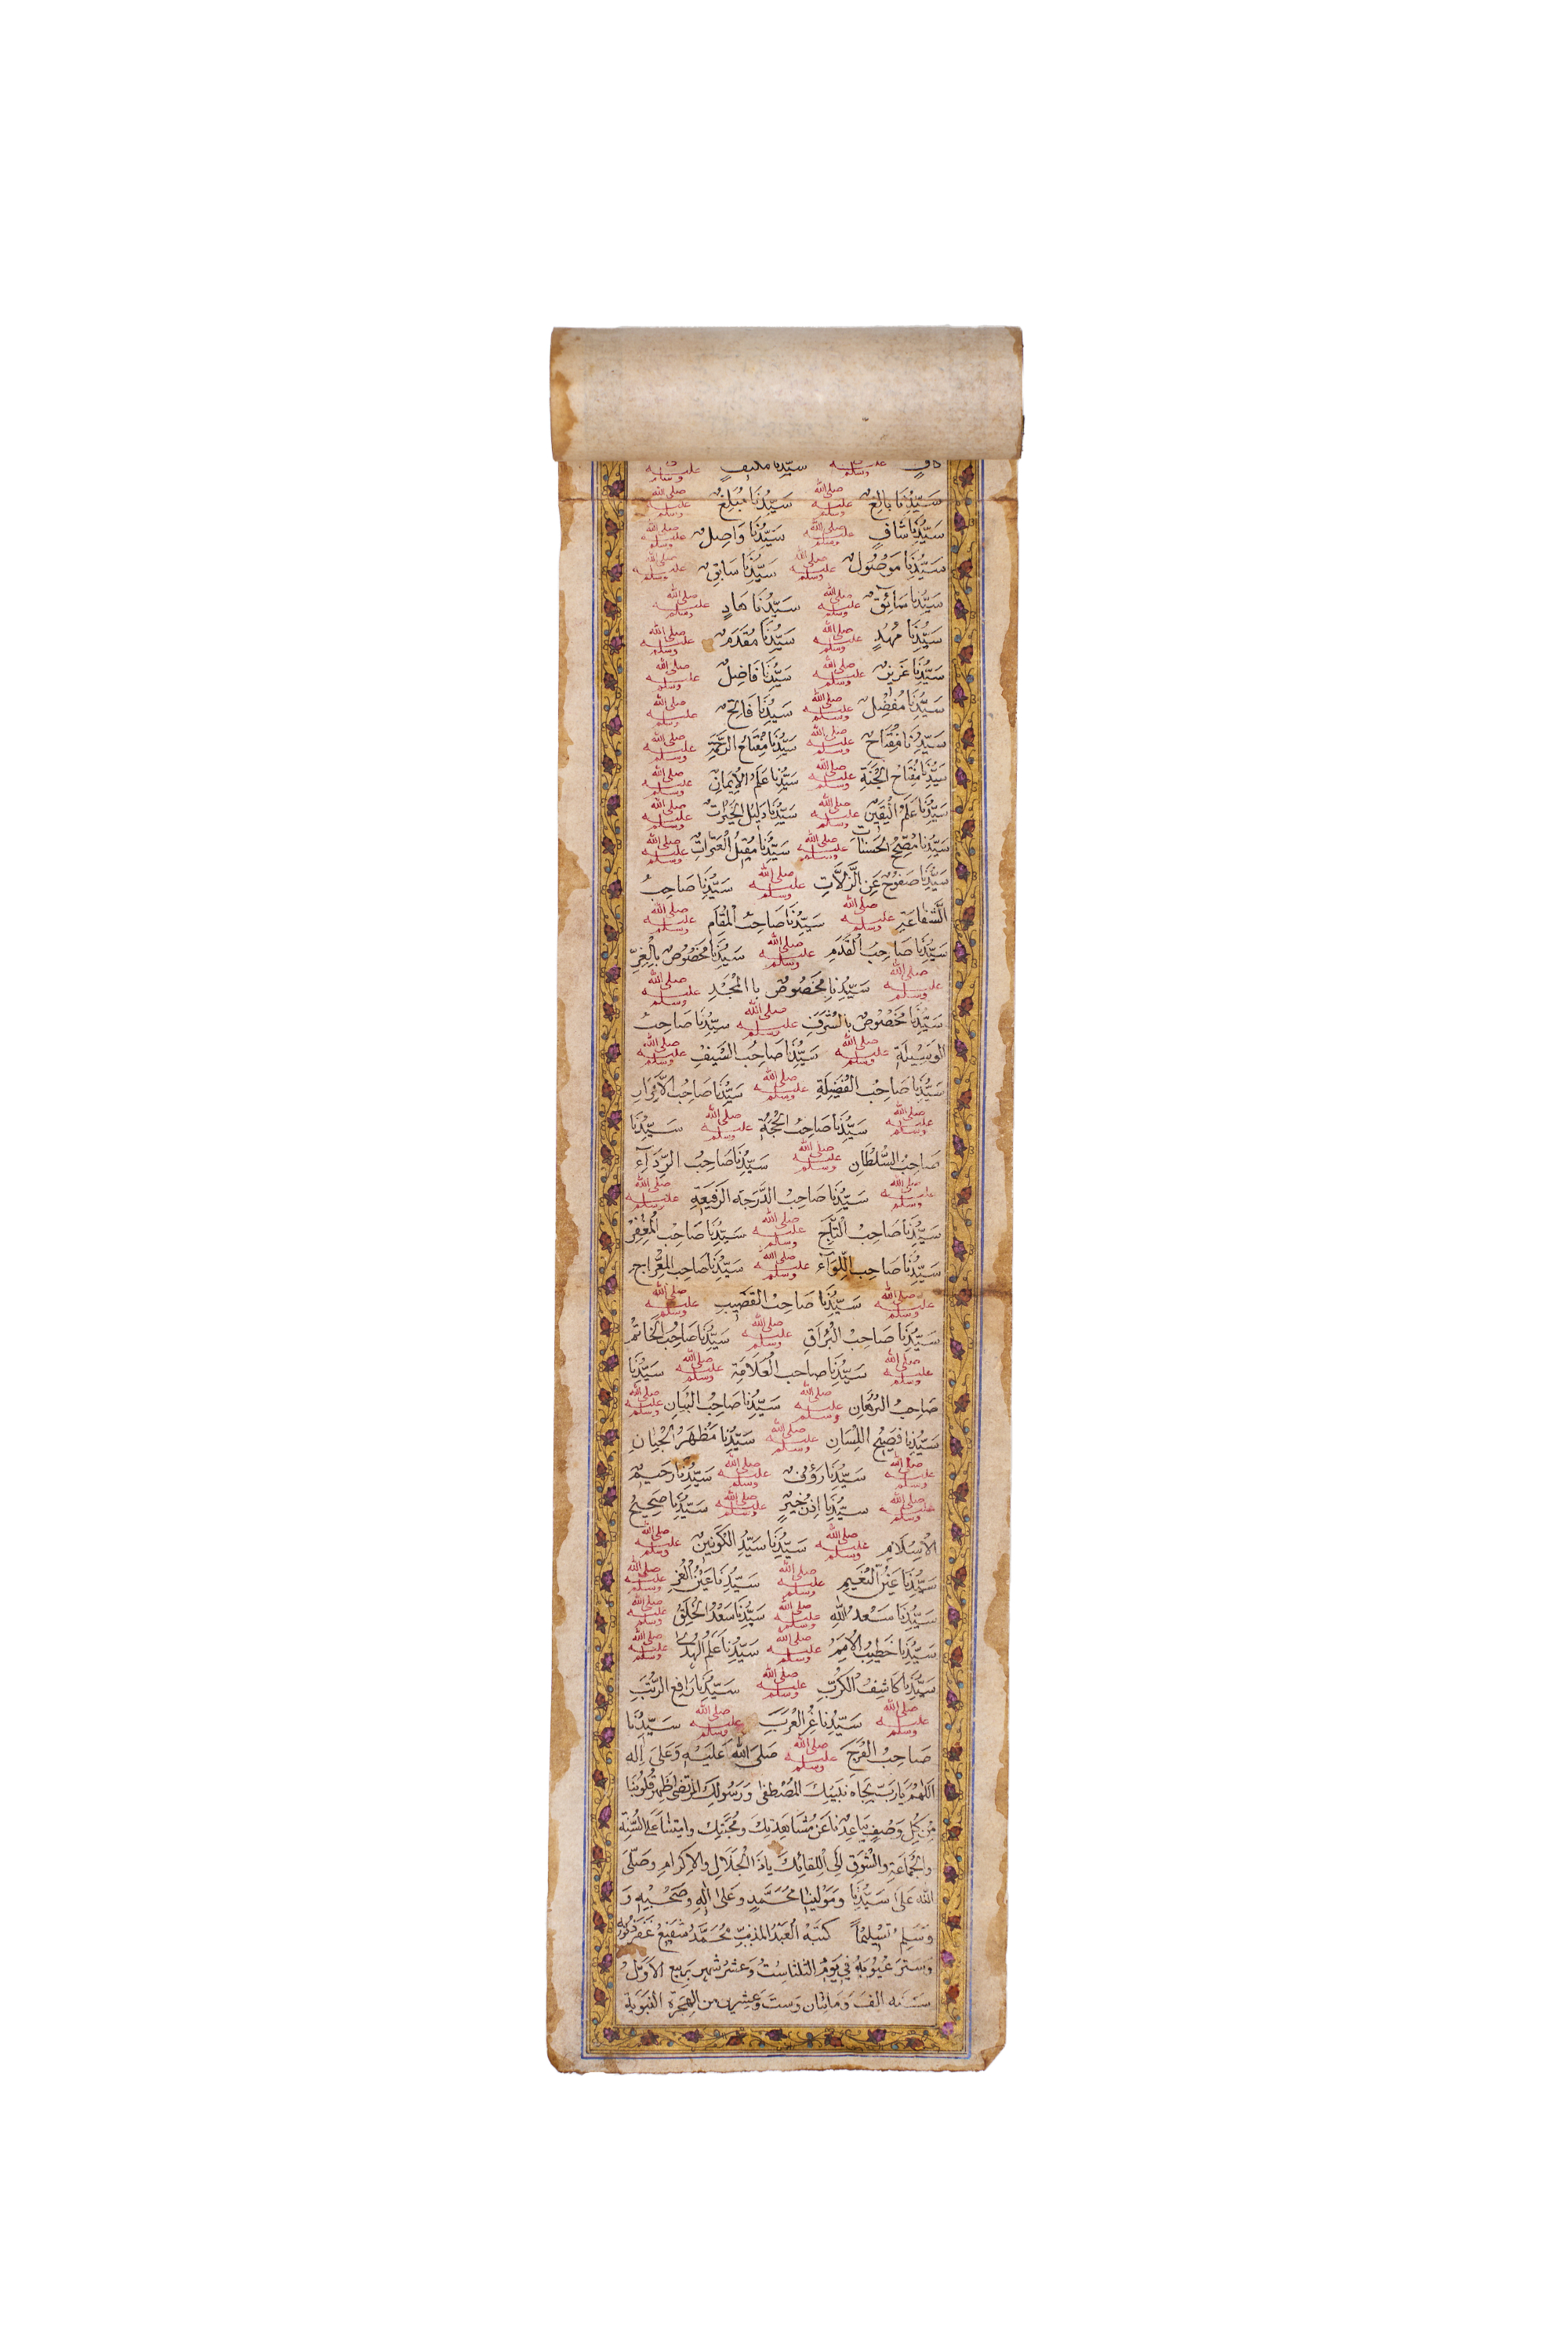 كافٍ صلى الله عليه وسلم سَيِّدُنَا مُكْتَفٍ صلى الله عليه وسلم
سَيِّدُنَا بَالِغٌ صلى الله عليه وسلم سَيِّدُنَا مُبَلِّغٌ صلى الله عليه وسلم
سَيِّدُنَا شَافٍ صلى الله عليه وسلم سَيِّدُنَا وَاصِلٌ صلى الله عليه وسلم
سَيِّدُنَا مَوْصُولٌ صلى الله عليه وسلم سَيِّدُنَا سَابِقٌ صلى الله عليه وسلم
سَيِّدُنَا سَائِقٌ صلى الله عليه وسلم سَيِّدُنَا هَادٍ صلى الله عليه وسلم
سَيِّدُنَا مُهْدٍ صلى الله عليه وسلم سَيِّدُنَا مُقَدَّمٌ صلى الله عليه وسلم
سَيِّدُنَا عَزِيزٌ صلى الله عليه وسلم سَيِّدُنَا فَاضِلٌ صلى الله عليه وسلم
سَيِّدُنَا مُفَضَّلٌ صلى الله عليه وسلم سَيِّدُنَا فَاتِحٌ صلى الله عليه وسلم
سَيِّدُنَا مِفْتَاحٌ صلى الله عليه وسلم سَيِّدُنَا مِفْتَاحُ الرَّحْمَةِ صلى الله عليه وسلم
سَيِّدُنَا مِفْتَاحُ الْجَنَّةِ صلى الله عليه وسلم سَيِّدُنَا عَلَمُ الْإِيمَانِ صلى الله عليه وسلم
سَيِّدُنَا عَلَمُ الْيَقِينِ صلى الله عليه وسلم سَيِّدُنَا دَلِيلُ الْخَيْرَاتِ صلى الله عليه وسلم
سَيِّدُنَا مُصَحِّحُ الْحَسَنَاتِ صلى الله عليه وسلم سَيِّدُنَا مُقِيلُ الْعَثَرَاتِ صلى الله عليه وسلم
سَيِّدُنَا صَفُوحٌ عَنِ الزَّلَّاتِ صلى الله عليه وسلم سَيِّدُنَا صَاحِبُ
الشَّفَاعَةِ صلى الله عليه وسلم سَيِّدُنَا صَاحِبُ الْمَقَامِ صلى الله عليه وسلم
سَيِّدُنَا صَاحِبُ الْقَدَمِ صلى الله عليه وسلم سَيِّدُنَا مَخْصُوصٌ بِالْعِزِّ
صلى الله عليه وسلم سَيِّدُنَا مَخْصُوصٌ باالْمَجْدِ صلى الله عليه وسلم
سَيِّدُنَا مَخْصُوصٌ بِالشَّرَفِ صلى الله عليه وسلم سَيِّدُنَا صَاحِبُ
الْوَسِيلَةِ صلى الله عليه وسلم سَيِّدُنَا صَاحِبُ السَّيْفِ صلى الله عليه وسلم
سَيِّدُنَا صَاحِبُ الْفَضِيلَةِ صلى الله عليه وسلم سَيِّدُنَا صَاحِبُ الْإِزَارِ
صلى الله عليه وسلم سَيِّدُنَا صَاحِبُ الْحُجَّةِ صلى الله عليه وسلم سَيِّدُنَا
صَاحِبُ السُّلْطَانِ صلى الله عليه وسلم سَيِّدُنَا صَاحِبُ الرِّدَآءِ
صلى الله عليه وسلم سَيِّدُنَا صَاحِبُ الدَّرَجَةِ الرَّفِيعَةِ صلى الله عليه وسلم
سَيِّدُنَا صَاحِبُ التَّاجِ صلى الله عليه وسلم سَيِّدُنَا صَاحِبُ الْمِغْفَرِ
سَيِّدُنَا صَاحِبُ اللِّوَآءِ صلى الله عليه وسلم سَيِّدُنَا صَاحِبُ الْمِعْرَاجِ
صلى الله عليه وسلم سَيِّدُنَا صَاحِبُ الْقَضِيبِ صلى الله عليه وسلم
سَيِّدُنَا صَاحِبُ الْبُرَاقِ صلى الله عليه وسلم سَيِّدُنَا صَاحِبُ الْخَاتَمِ
صلى الله عليه وسلم سَيِّدُنَا صَاحِبُ الْعَلَامَةِ صلى الله عليه وسلم سَيِّدُنَا
صَاحِبُ الْبُرْهَانِ صلى الله عليه وسلم سَيِّدُنَا صَاحِبُ الْبَيَانِ صلى الله عليه وسلم
سَيِّدُنَا فَصِيحُ اللِّسَانِ صلى الله عليه وسلم سَيِّدُنَا مُطَهَّرُ الْجَنَانِ
صلى الله عليه وسلم سَيِّدُنَا رَؤُفٌ صلى الله عليه وسلم سَيِّدُنَا رَحِيمٌ
صلى الله عليه وسلم سَيِّدُنَا اُذُنُ خَيْرٍ صلى الله عليه وسلم سَيِّدُنَا صَحِيحُ
الْاِسْلَامِ صلى الله عليه وسلم سَيِّدُنَا سَيِّدُ الْكَوْنَيْنِ صلى الله عليه وسلم
سَيِّدُنَا عَيْنُ النَّعِيمِ صلى الله عليه وسلم سَيِّدُنَا عَيْنُ الْغُرِّ صلى الله عليه وسلم
سَيِّدُنَا سَعْدُ اللهِ صلى الله عليه وسلم سَيِّدُنَا سَعْدُ الْخَلْقِ صلى الله عليه وسلم
سَيِّدُنَا خَطِيبُ الْأُمَمِ صلى الله عليه وسلم سَيِّدُنَا عَلَمُ الْهُدَى صلى الله عليه وسلم
سَيِّدُنَا كَاشِفُ الْكُرَبِ صلى الله عليه وسلم سَيِّدُنَا رَافِعُ الرُّتَبِ
صلى الله عليه وسلم سَيِّدُنَا عِزُّ الْعَرَبِ صلى الله عليه وسلم سَيِّدُنَا
صَاحِبُ الْفَرَجِ صلى الله عليه وسلم صَلَى اللهُ عَلَيْهِ وَعَلَى اٰلِهِ
اَللّٰهُمَّ يَارَبِّ بِجَاهِ نَبِيِّكَ الْمُصْطَفٰى وَرَسُولِكَ الْمُرْتَضٰى طَهِّرْ قُلُوبَنَا
مِنْ كُلِّ وَصْفٍ يُبَاعِدُنَا عَنْ مُشَاهَدَتِكَ وَمَحَبَّتِكَ وَامِتْنَا عَلَى السُّنَّةِ
وَالْجَمَاعَةِ وَالشَّوْقِ اِلَى اللِقَائِكَ يَاذَا الْجَلَالِ وَالْاِكْرَامِ وَصَلَّى
اللهُ عَلَى سَيِّدِنَا وَمَوْلَيْنَا مُحَمَّدٍ وَعَلَى اٰلِهِ وَصَحْبِهِ وَ
وَسَلِّمْ تَسْلِيْمًا كَتَبَهُ الْعَبْدُ الْمُذْنِبُ مُحَمَّدْ شَفِيعْ غَفَرَ ذُنُوبَهُ
وَسَتَرَ عُيُوبَهُ فِي يَوْمِ الثلثا سِتْ وَعَشَرْ شَهْرِ رَبِيعِ الْاَوَّلْ
سَنَه اَلْفْ وَمَاتَانْ وَسِتْ وَعِشْرِينْ مِنَ الْهِجْرَةِ النَّبَوِيَّةِ